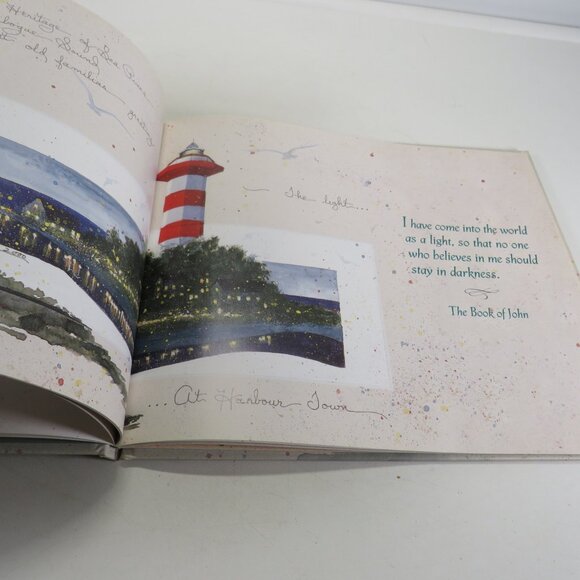 Heritage of Sea Pines
Sound,
old familiar greeting
The light...
I have come into the world
as a light, so that no one
who believes in me should
stay in darkness.
The Book of John
...At Harbour Town